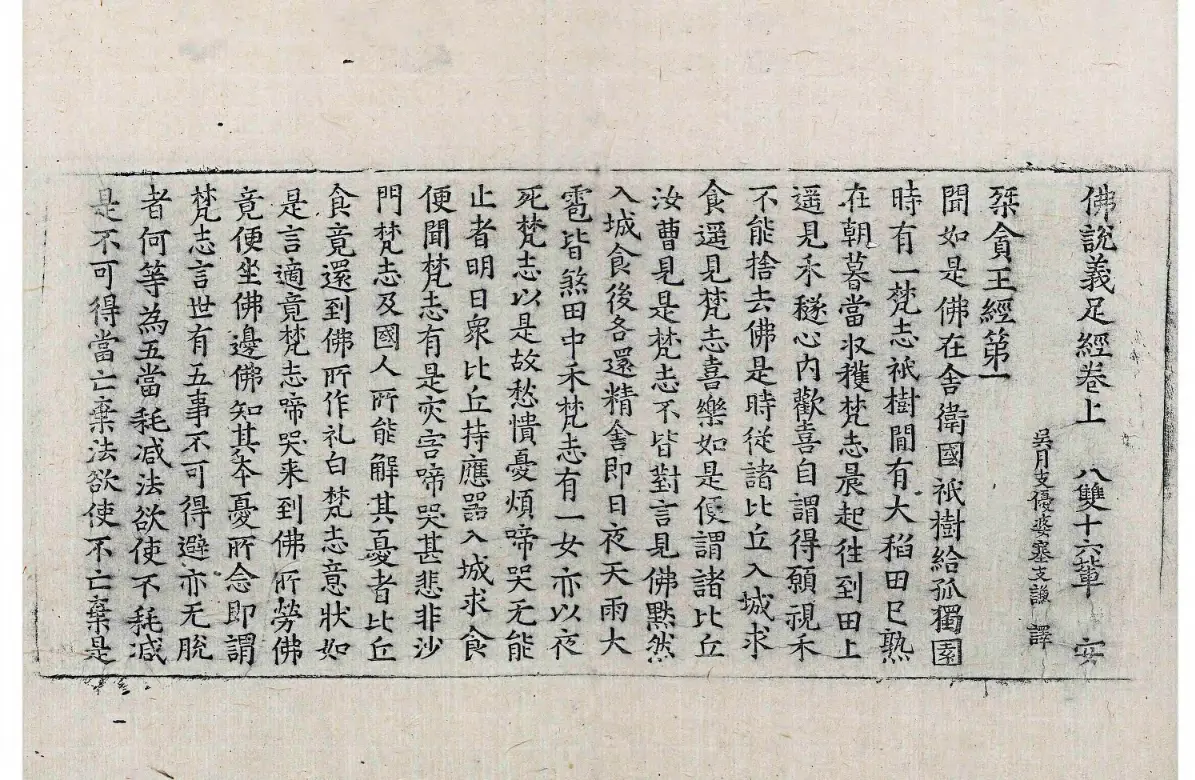 佛說義足經卷上 八雙十六輩 安
吳月支優婆塞支謙 譯
桀貪王經第一
聞如是佛在舍衛國祇樹給孤獨園
時有一梵志祇樹間有大稻田已熟
在朝暮當収穫梵志晨起往到田上
遥見禾穟心內歡喜自謂得願視禾
不能捨去佛是時從諸比丘入城求
食遥見梵志喜樂如是便謂諸比丘
汝曹見是梵志不皆對言見佛黙然
入城食後各還精舍即日夜天雨大
雹皆煞田中禾梵志有一女亦以夜
死梵志以是故愁憒憂煩啼哭无能
止者明日衆比丘持應器入城求食
便聞梵志有是灾害啼哭甚悲非沙
門梵志及國人所能解其憂者比丘
食竟還到佛所作礼白梵志意狀如
是言適竟梵志啼哭来到佛所勞佛
竟便坐佛邊佛知其本憂所念即謂
梵志言世有五事不可得避亦无脫
者何等為五當耗减法欲使不耗减
是不可得當亡棄法欲使不亡棄是